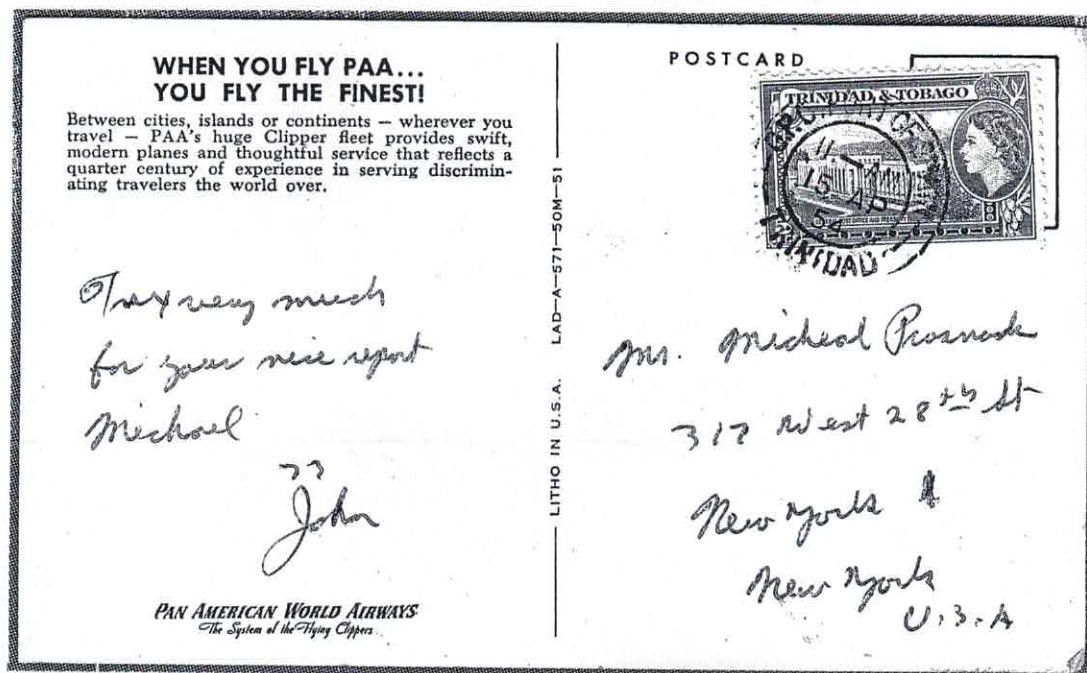 WHEN YOU FLY PAA...
YOU FLY THE FINEST!
Between cities, islands or continents — wherever you
travel — PAA's huge Clipper fleet provides swift,
modern planes and thoughtful service that reflects a
quarter century of experience in serving discrimin-
ating travelers the world over.
Tnx very much
for your nice report
Michael
73
John
PAN AMERICAN WORLD AIRWAYS
The System of the Flying Clippers
LITHO IN U.S.A. LAD—A—571—50M—51
POSTCARD
TRINIDAD & TOBAGO
11 - A
15 AP
54
TRINIDAD
Mr. Micheal
317 West 28th St
New York 1
New York
U.S.A